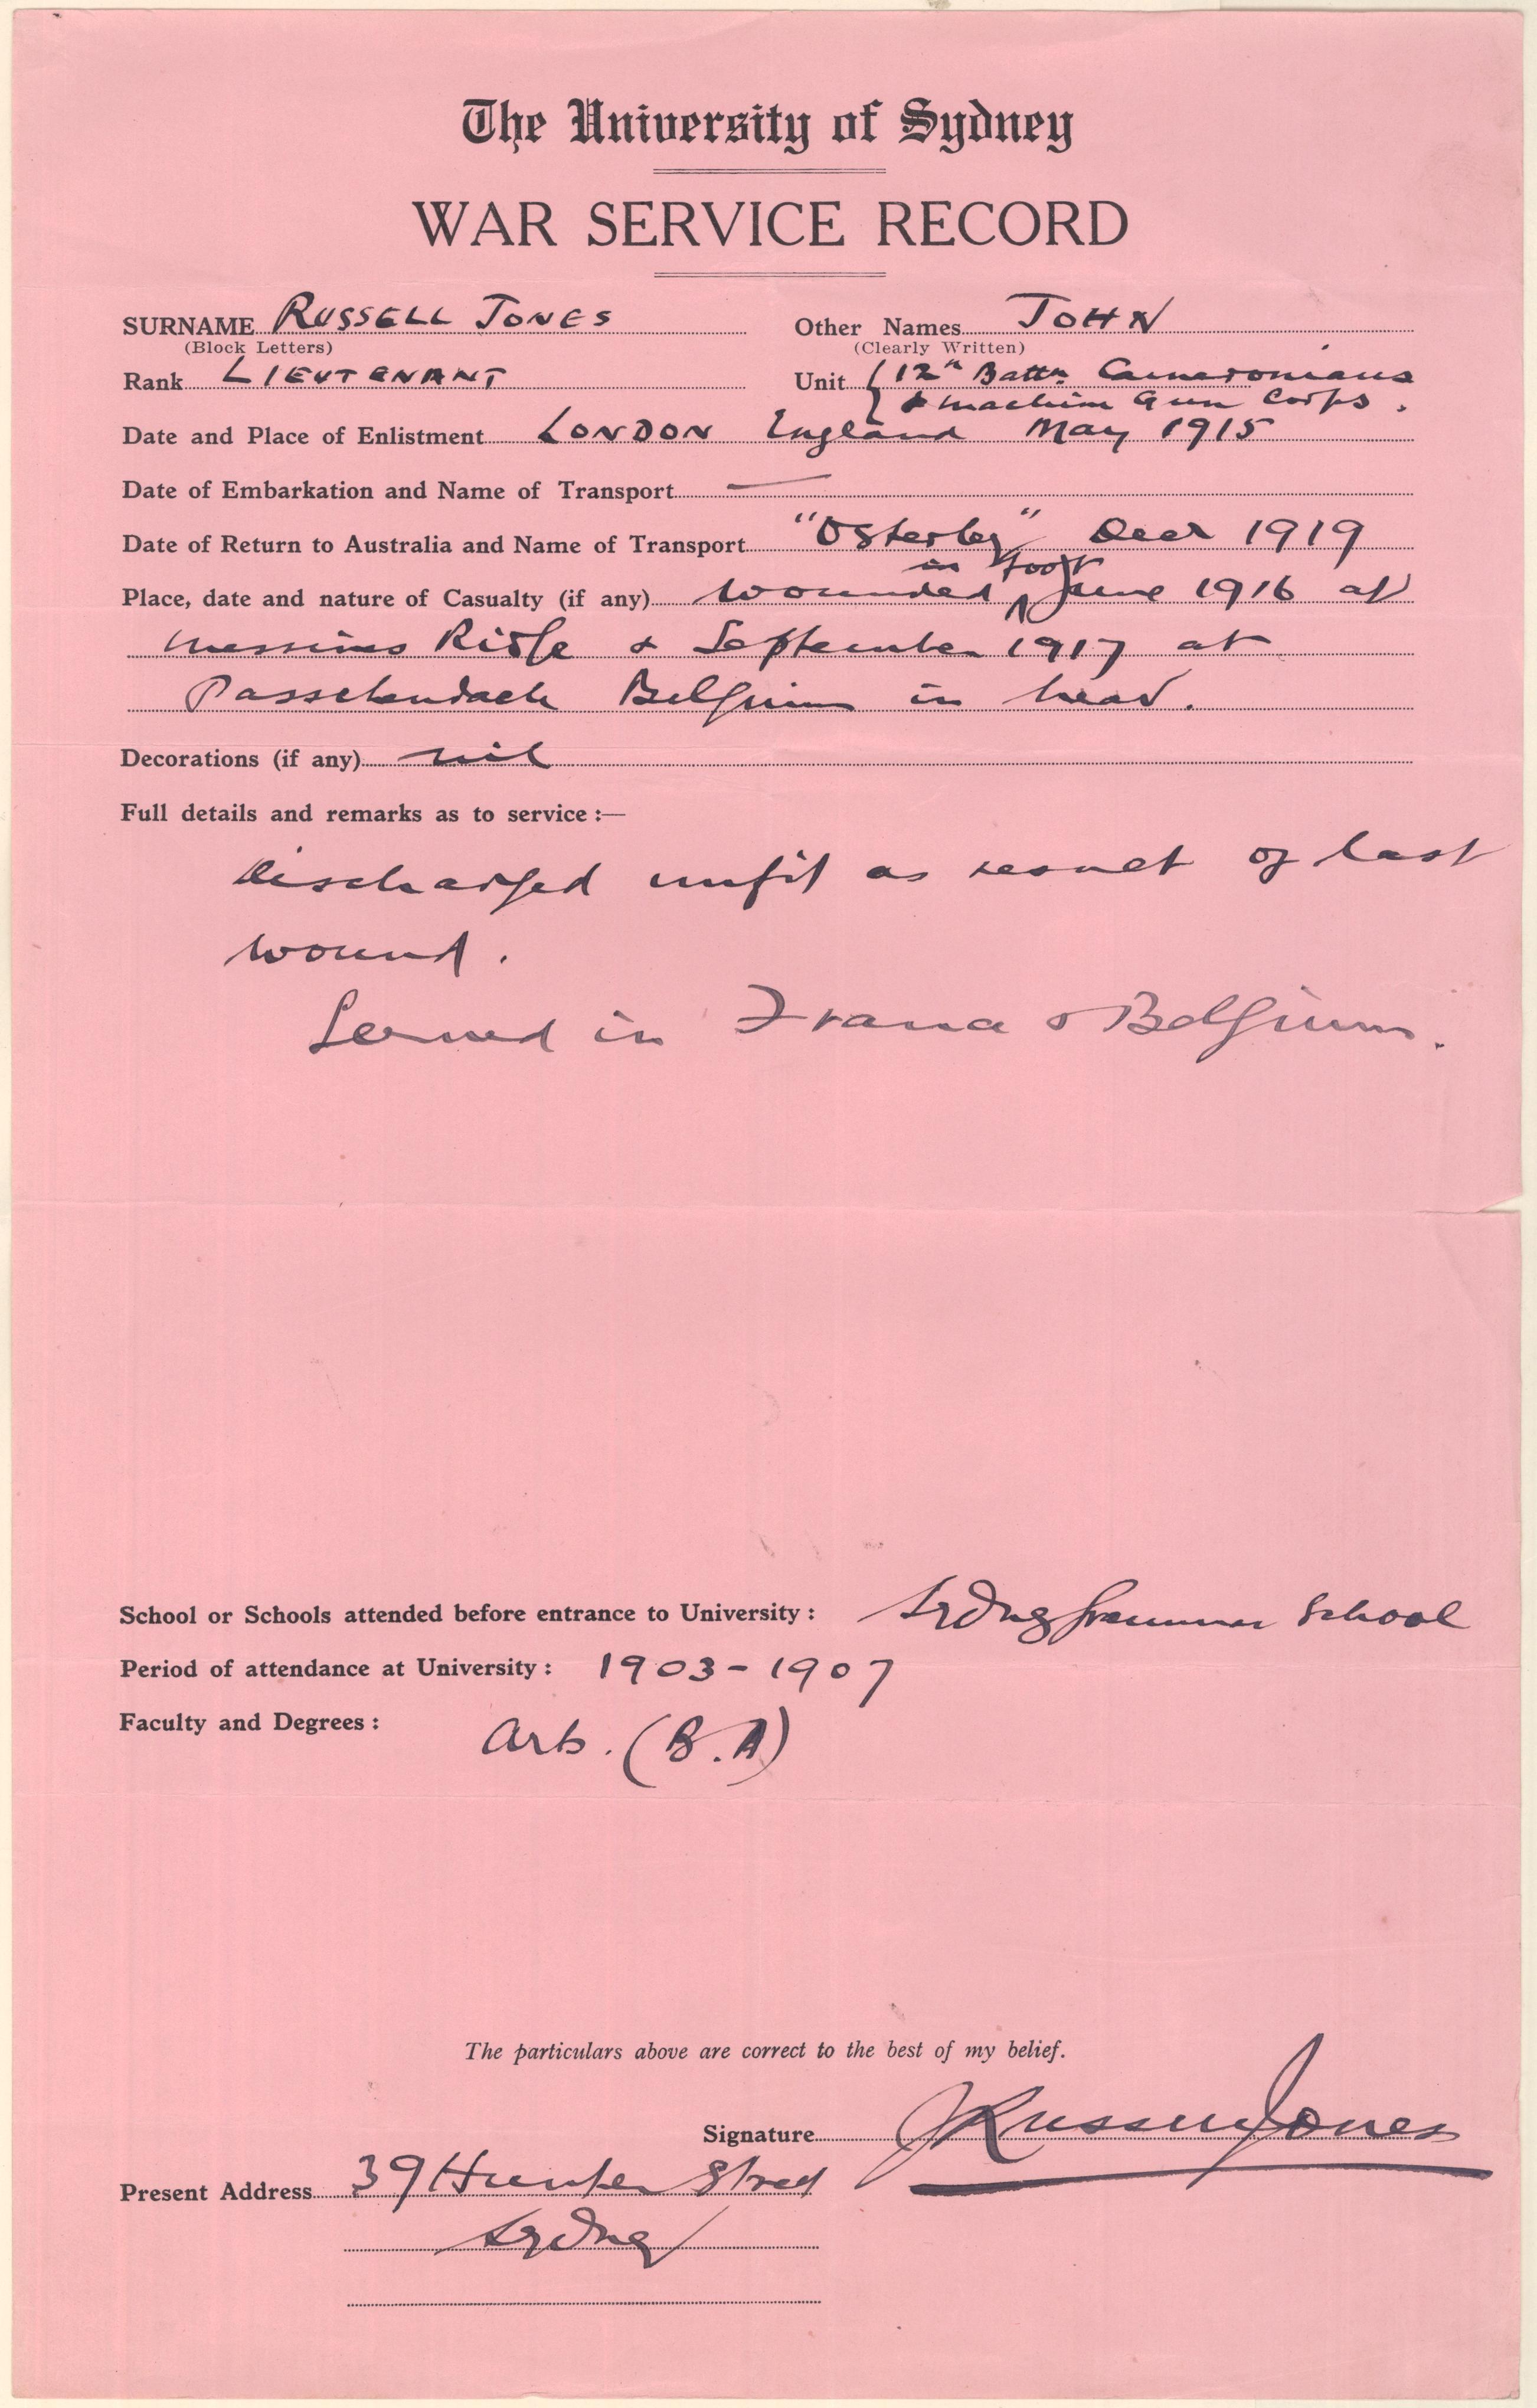 The University of Sydney
WAR SERVICE RECORD
SURNAME RUSSELL JONES Other Names JOHN
(Block Letters) (Clearly Written)
Rank LIEUTENANT Unit { 12th Battn Cameronians
& Machine Gun Corps.
Date and Place of Enlistment LONDON England May 1915
Date of Embarkation and Name of Transport —
Date of Return to Australia and Name of Transport "Osterley" Decr 1919
in foot
Place, date and nature of Casualty (if any) Wounded ^ June 1916 at
Messines Ridge & September 1917 at
Passchendaele Belgium in head.
Decorations (if any) nil
Full details and remarks as to service :—
Discharged unfit as result of last
wound.
Served in France & Belgium.
School or Schools attended before entrance to University : Sydney Grammar School
Period of attendance at University : 1903 - 1907
Faculty and Degrees : Arts. (B.A)
The particulars above are correct to the best of my belief.
Signature JRussell Jones
Present Address 39 Hunter Street
Sydney